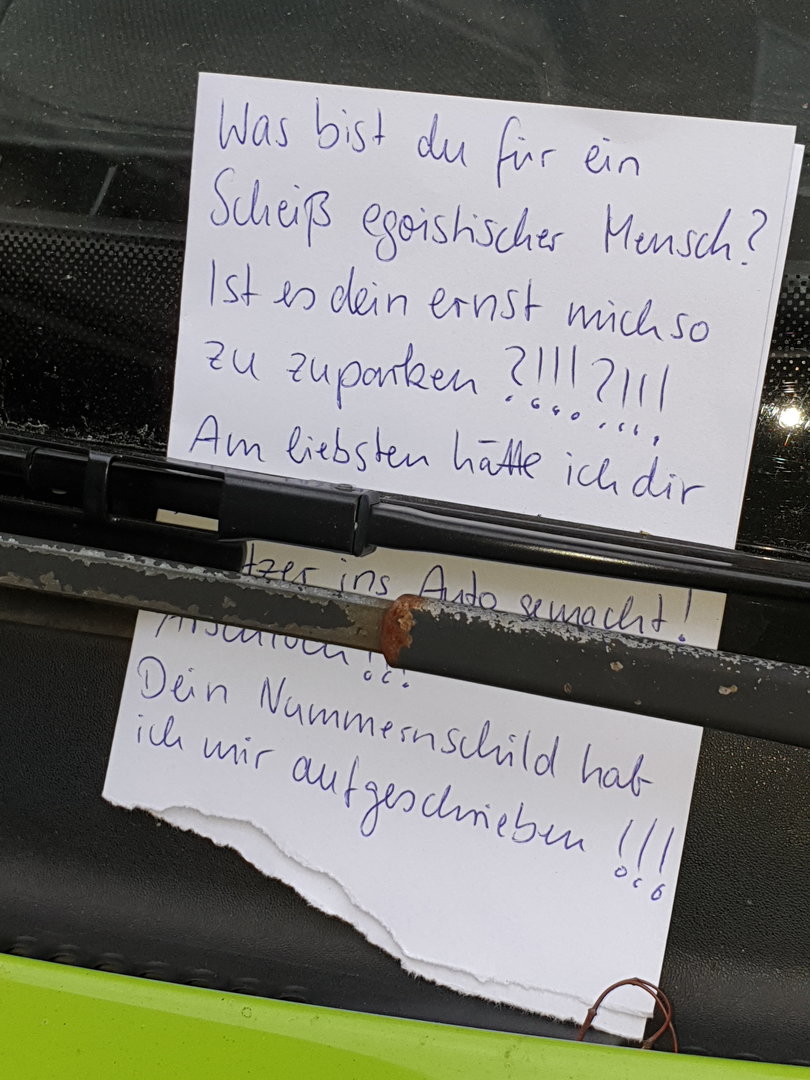 Was bist du für ein
Scheiß egoistischer Mensch?
Ist es dein ernst mich so
zu zuparken ?!!!?!!!
Am liebsten hätte ich dir
ins Auto gemacht!
Arschloch!!!
Dein Nummernschild hab
ich mir aufgeschrieben!!!